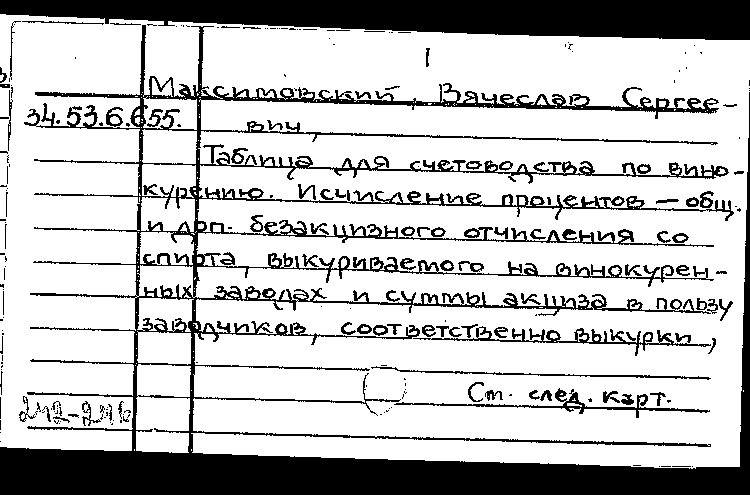 I
Максимовский, Вячеслав Сергее-
34.53.6.655. вич,
Таблица для счетоводства по вино-
курению. Исчисление процентов — общ.
и доп. безакцизного отчисления со
спирта, выкуриваемого на винокурен-
ных заводах и суммы акциза в пользу
заводчиков, соответственно выкурки,
См. след. карт.